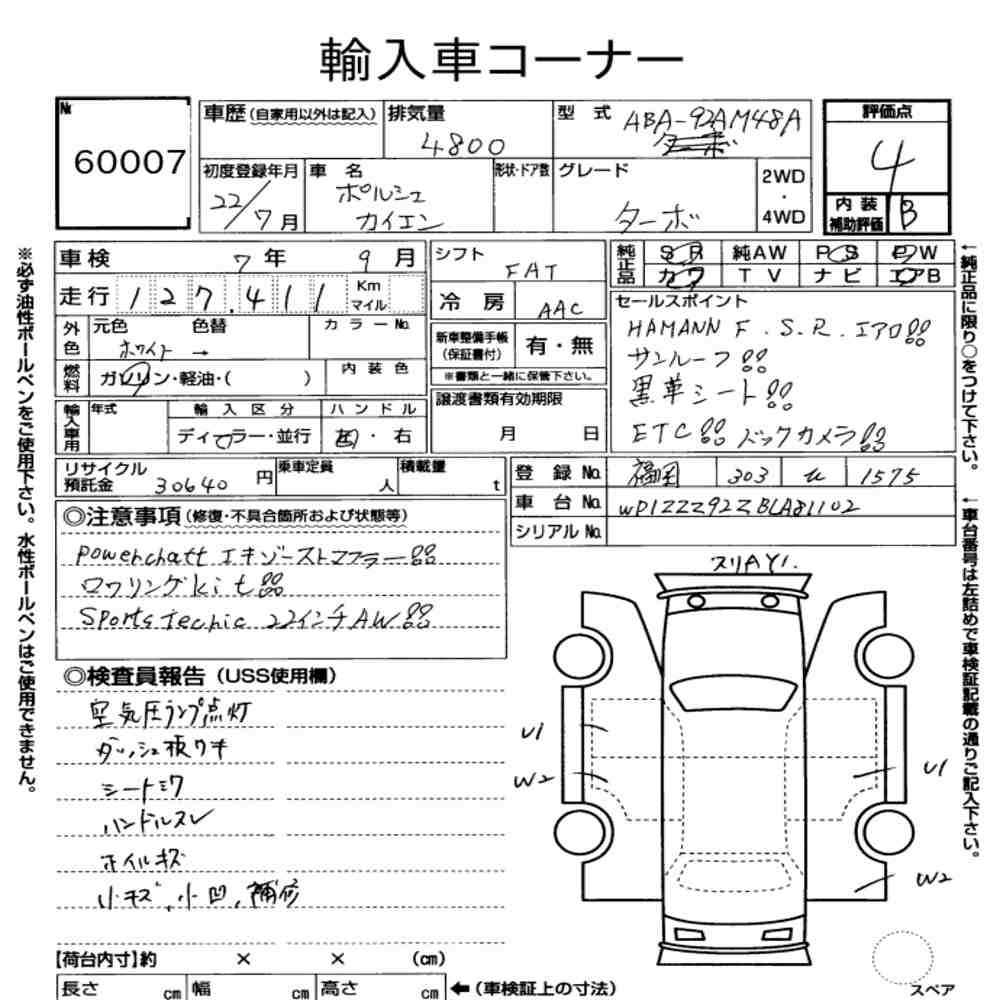 輸入車コーナー
№
60007
車歴(自家用以外は記入)
排気量
4800
型式
ABA-92AM48A
評価点
4
内装補助評価
B
初度登録年月
22/7月
車名
ポルシェ
カイエン
形状・ドア数
グレード
ターボ
2WD
・
4WD
※必ず油性ボールペンをご使用下さい。水性ボールペンはご使用できません。
車検 7年 9月
走行 127,411 Km マイル
外色
元色 色替
ホワイト →
カラーNo.
燃料
ガソリン・軽油・( )
内装色
輸入車用
年式
輸入区分
ディーラー・並行
ハンドル
左・右
シフト
FAT
冷房
AAC
新車整備手帳
(保証書付)
有・無
※書類と一緒に保管下さい。
譲渡書類有効期限
月 日
純正品
SR 純AW PS PW
カワ TV ナビ エアB
セールスポイント
HAMANN F.S.R.エアロ
サンルーフ
黒革シート
ETC バックカメラ
←純正品に限り○をつけて下さい。
リサイクル預託金
30640円
乗車定員
人
積載量
t
登録No. 福岡 303 1575
車台No. WP1ZZZ92ZBLA81102
シリアルNo.
←車台番号は左詰めで車検証記載の通りご記入下さい。
◎注意事項(修復・不具合箇所および状態等)
Powerchatt エキゾーストマフラー
ロワリングkit
Sports Technic 22インチAW
◎検査員報告(USS使用欄)
空気圧ランプ点灯
ダッシュ板ワキ
シートシワ
ハンドルスレ
ホイルキズ
小キズ、小凹、補修
スリA Y1.
U1
W2
U1
W2
スペア
【荷台内寸】約 × × (cm)
長さ cm 幅 cm 高さ cm
←(車検証上の寸法)